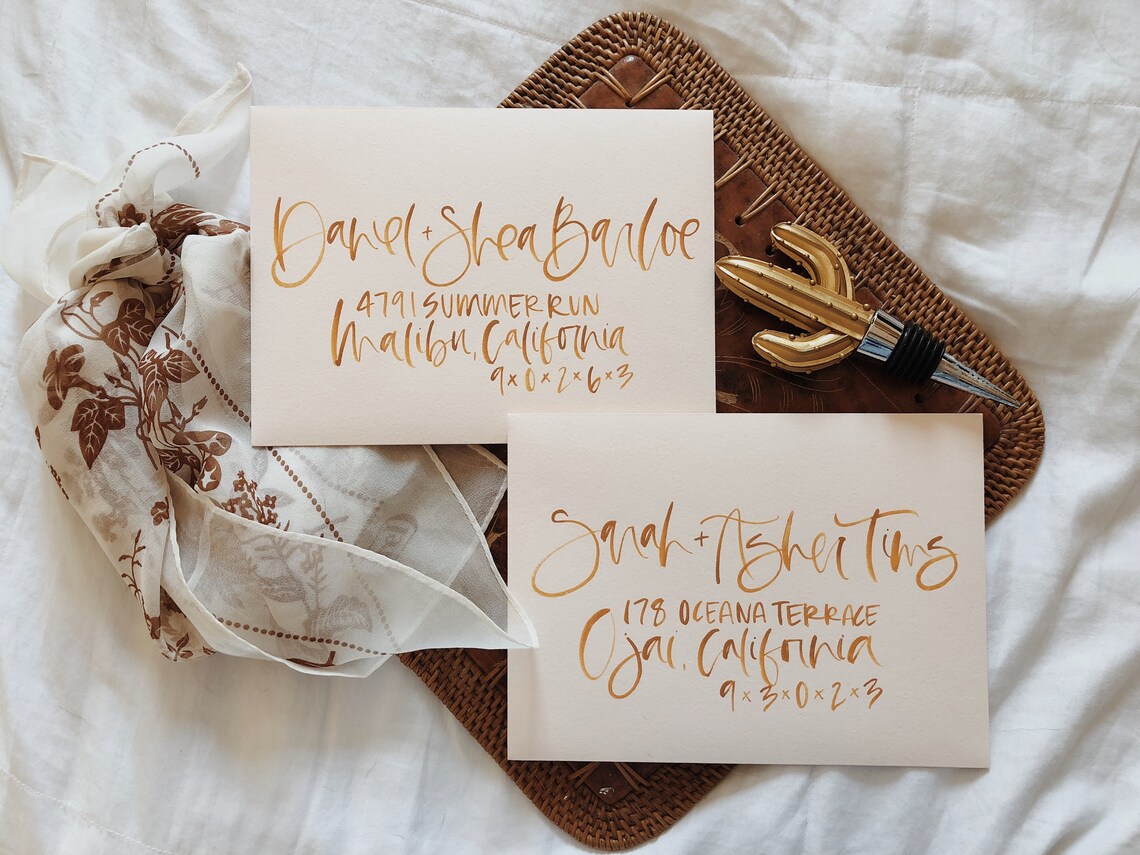 Daniel + Shea Barloe
4791 SUMMER RUN
Malibu, California
9x0x2x6x3
Sarah + Asher Tims
178 OCEANA TERRACE
Ojai, California
9x3x0x2x3